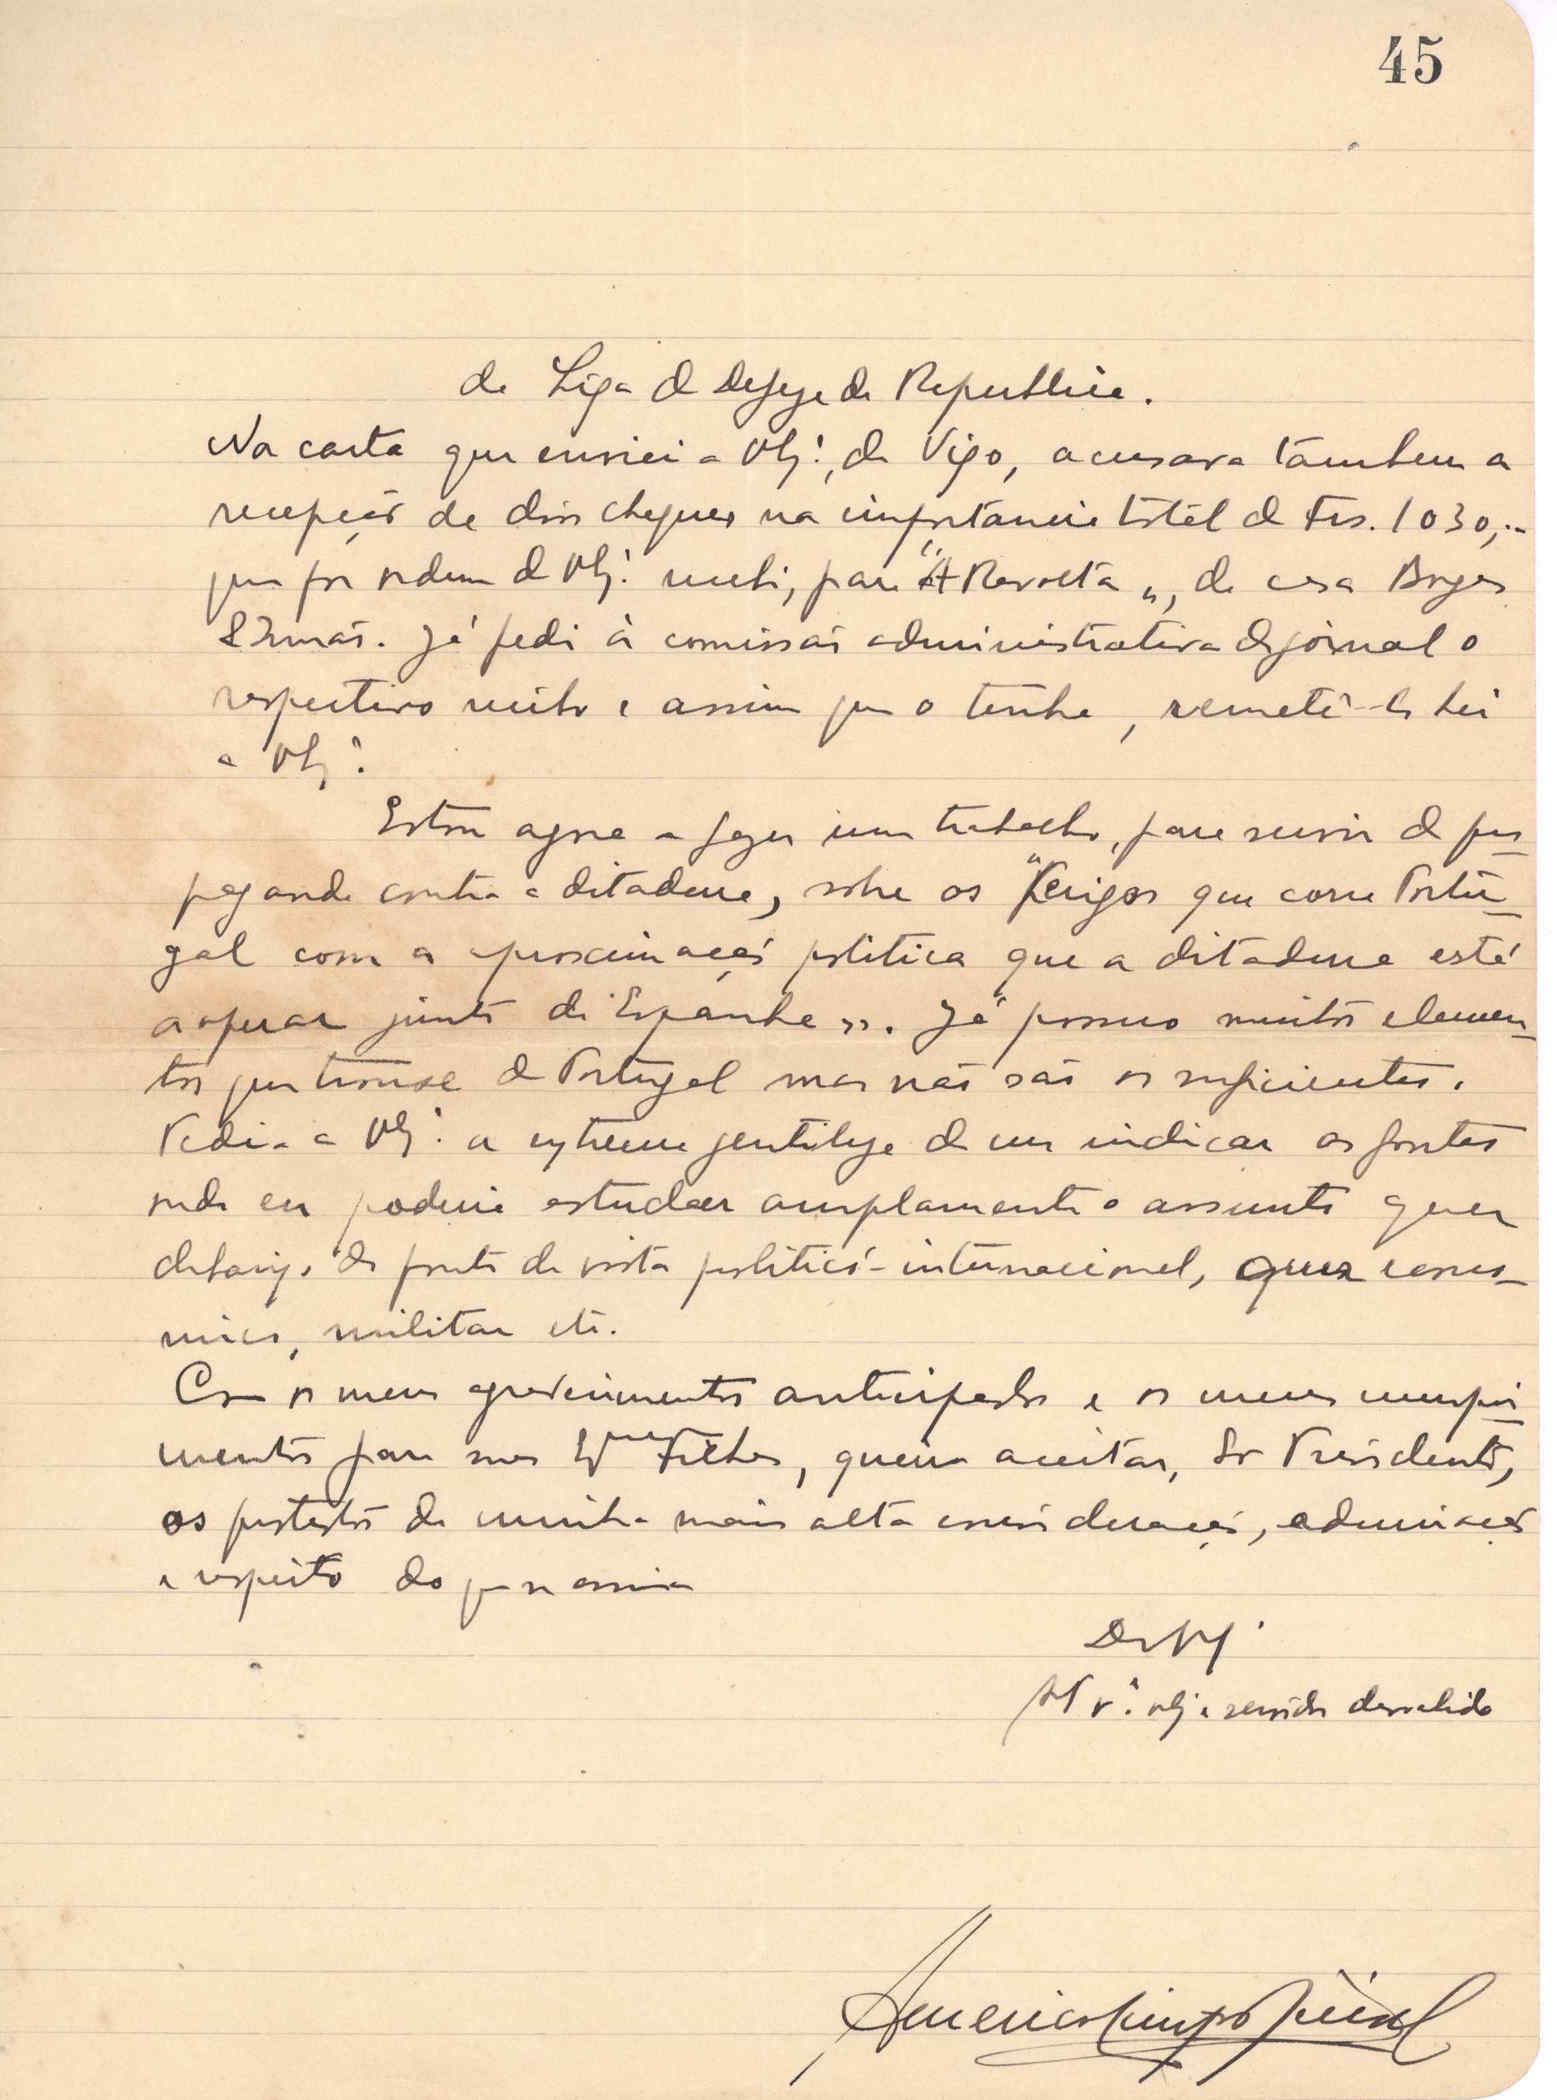 45
da Liga de Defeza da Republica.
Na carta que enviei a V. Ex.ª, de Vigo, acusava tambem a
recepção de dois cheques na importancia total de Frs. 1030,--
que por ordem de V. Ex.ª recebi, para "A Revolta", da casa Borges
& Irmão. Já pedi á comissão administrativa do jornal o
respectivo recibo e assim que o tenha, remetê-lo hei
a V. Ex.ª
Estou agora a fazer um trabalho, para servir de pro-
paganda contra a ditadura, sobre os "Perigos que corre Portu-
gal com a aproximação politica que a ditadura está
a operar junto da Espanha". Já possuo muitos elemen-
tos que trouxe de Portugal mas não são os suficientes.
Pedia a V. Ex.ª a extrema gentileza de me indicar as fontes
onde eu poderia estudar amplamente o assunto quer
debaixo do ponto de vista politico-internacional, quer econo-
mico, militar etc.
Com os meus agradecimentos antecipados e os meus cumpri-
mentos para suas Ex.mas Filhas, queira aceitar, Sr Presidente,
os protestos da minha mais alta consideração, admiração
e respeito do que se assina
De V. Ex.ª
At.º V.or obg.º e servidor desvalido